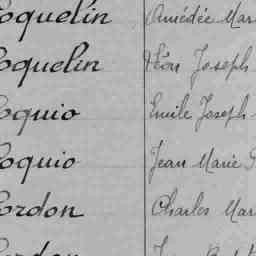 Coquelin Amédée Mar
Coquelin Léon Joseph
Coquio Emile Joseph
Coquio Jean Marie
Cordon Charles Mar
Cordon